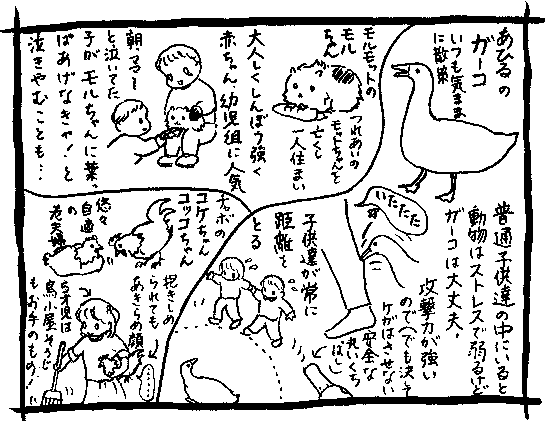 あひるの
ガーコ
いつも気まま
に散策
普通子供達の中にいると
動物はストレスで弱るけど
ガーコは大丈夫。
攻撃力が強い
ので(でも決して
ケガはさせない
安全な
丸いくち
ばし)
いたたた
子供達が常に
距離を
とる
モルモットの
モル
ちゃん
つれあいの
モットちゃんを
亡くし
一人住まい
大人しくしんぼう強く
赤ちゃん・幼児組に人気
朝、ママ〜
と泣いてた
子がモルちゃんに葉っ
ぱあげなきゃ!と
泣きやむことも…
チャボの
コケちゃん
コッコちゃん
悠々
自適
の
老夫婦
抱きしめ
られても
あきらめ顔で
5才児は
鳥小屋そうじ
もお手のもの!